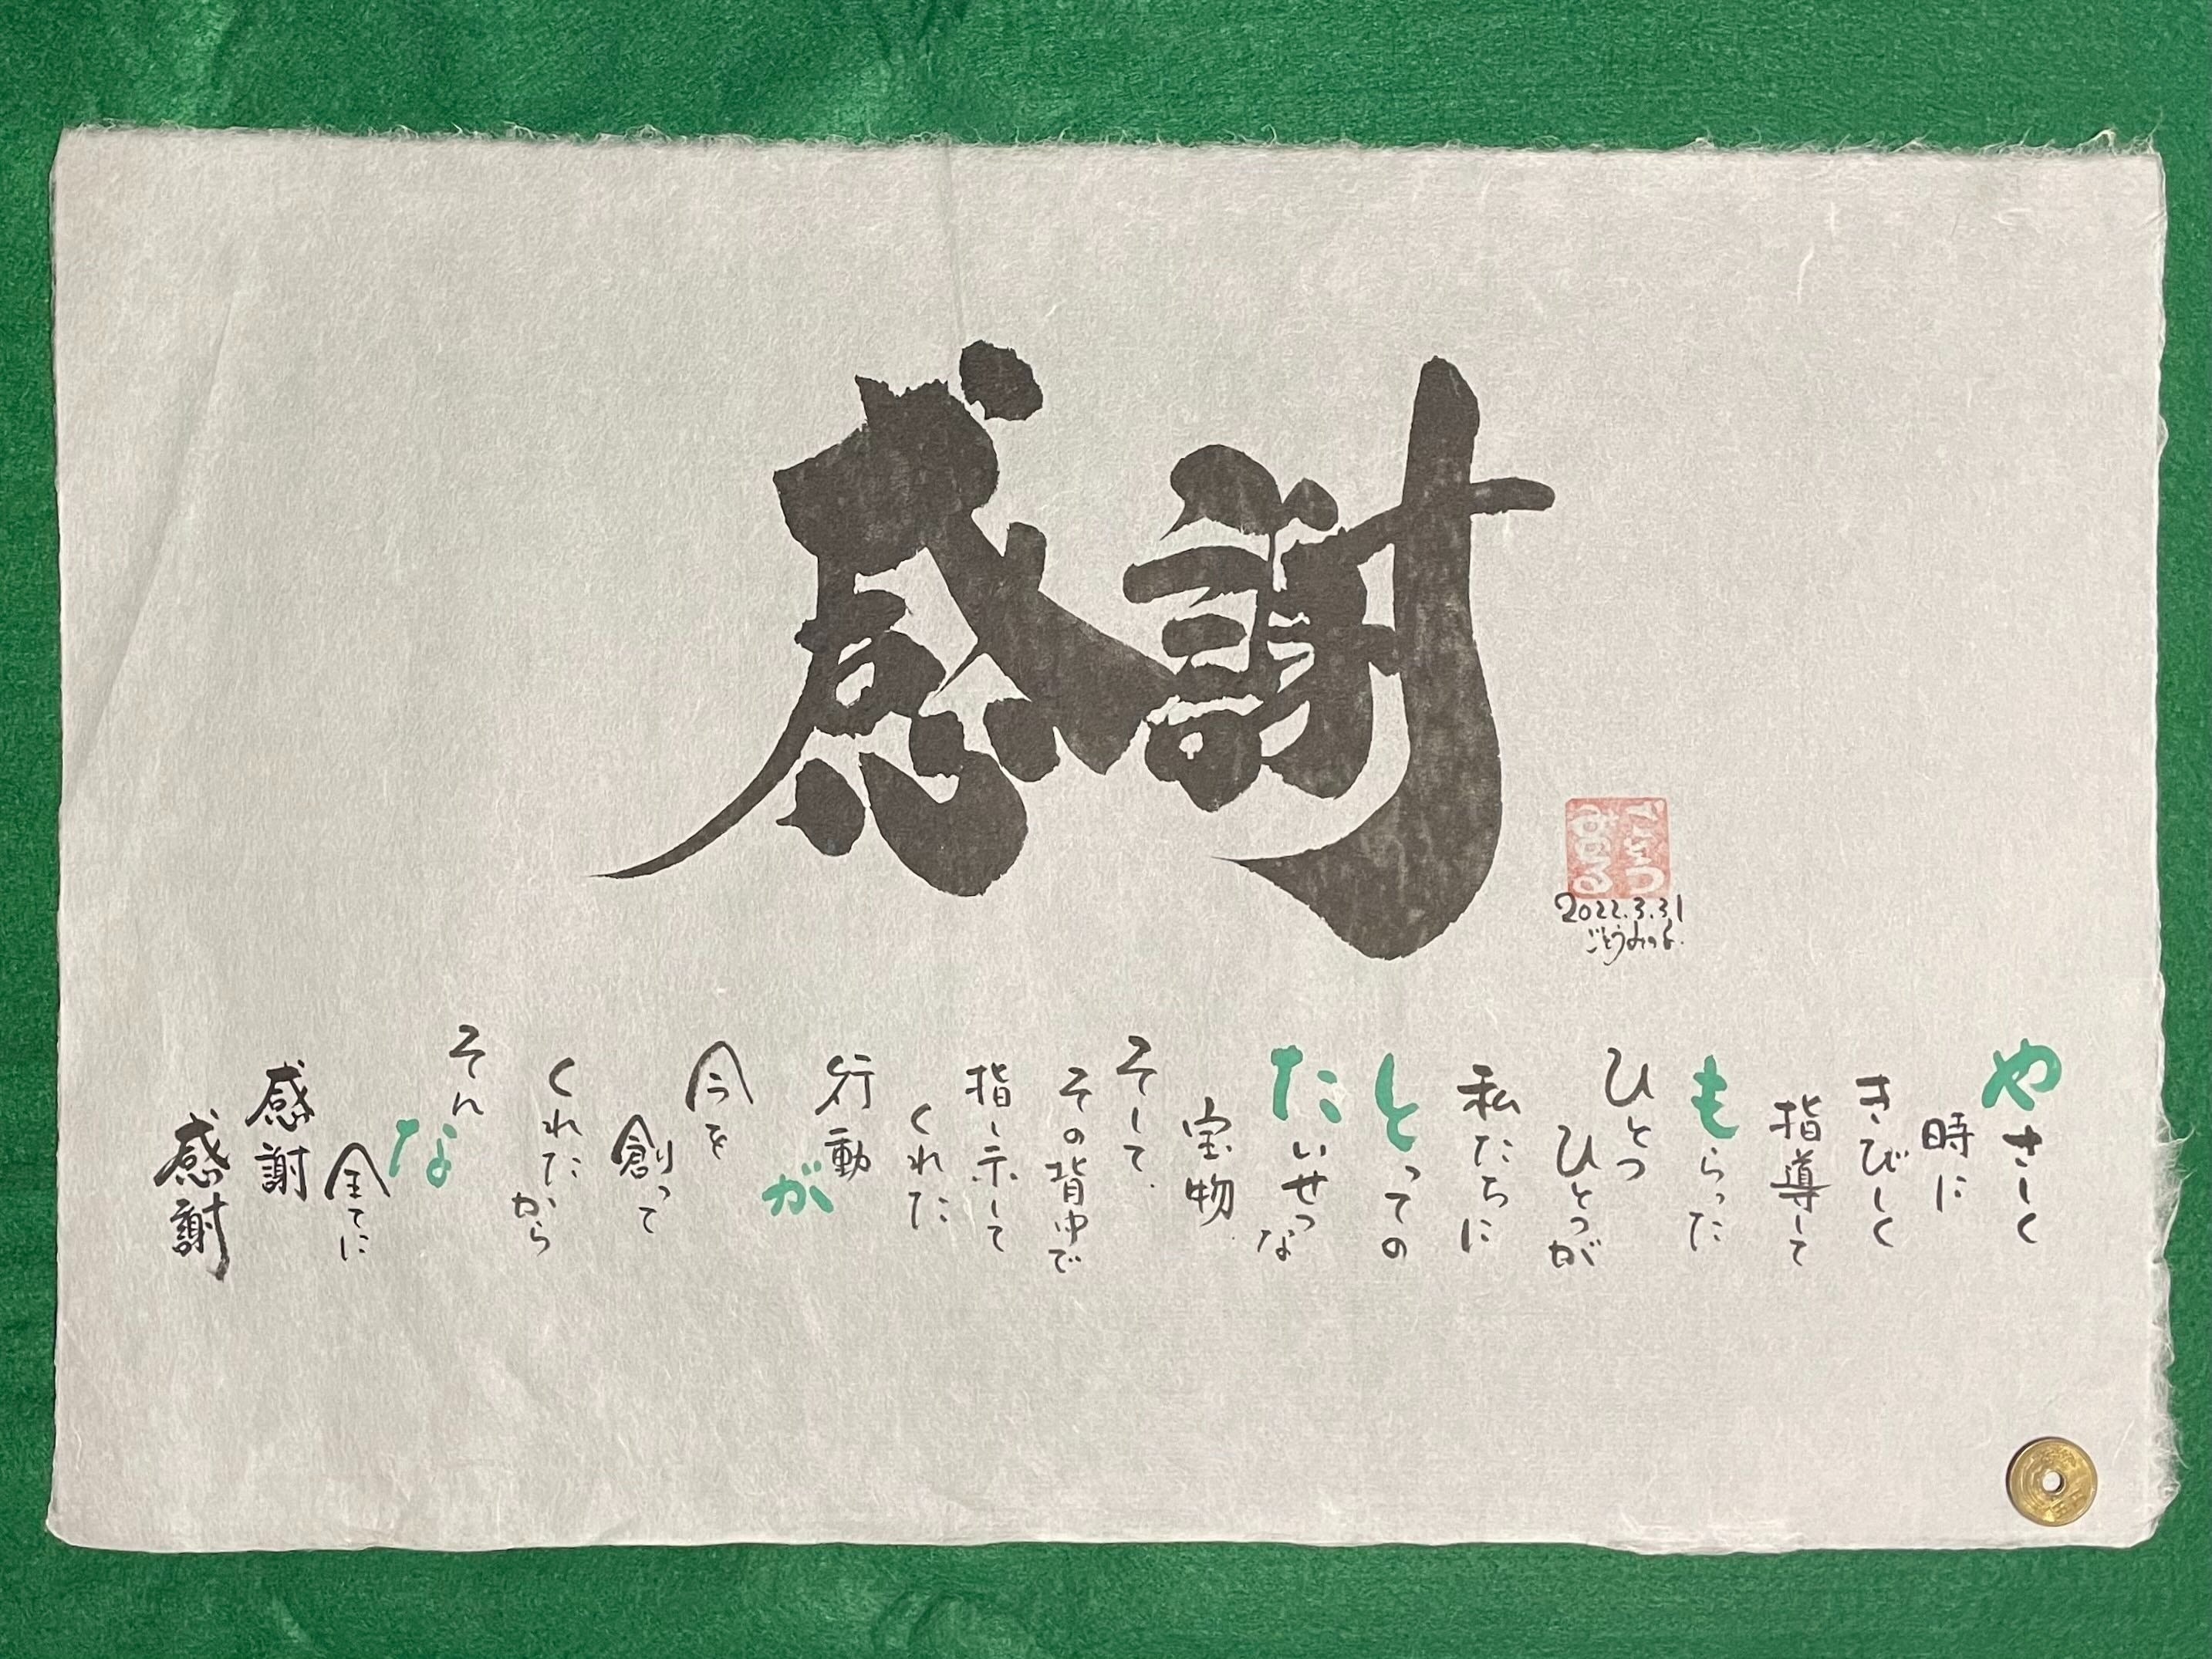 感謝
2022.3.31
ごとうみつる
やさしく
時に
きびしく
指導して
もらった
ひとつ
ひとつが
私たちに
とっての
たいせつな
宝物
そして
その背中で
指し示して
くれた
行動が
今を
創って
くれたから
そんな
全てに
感謝
感謝